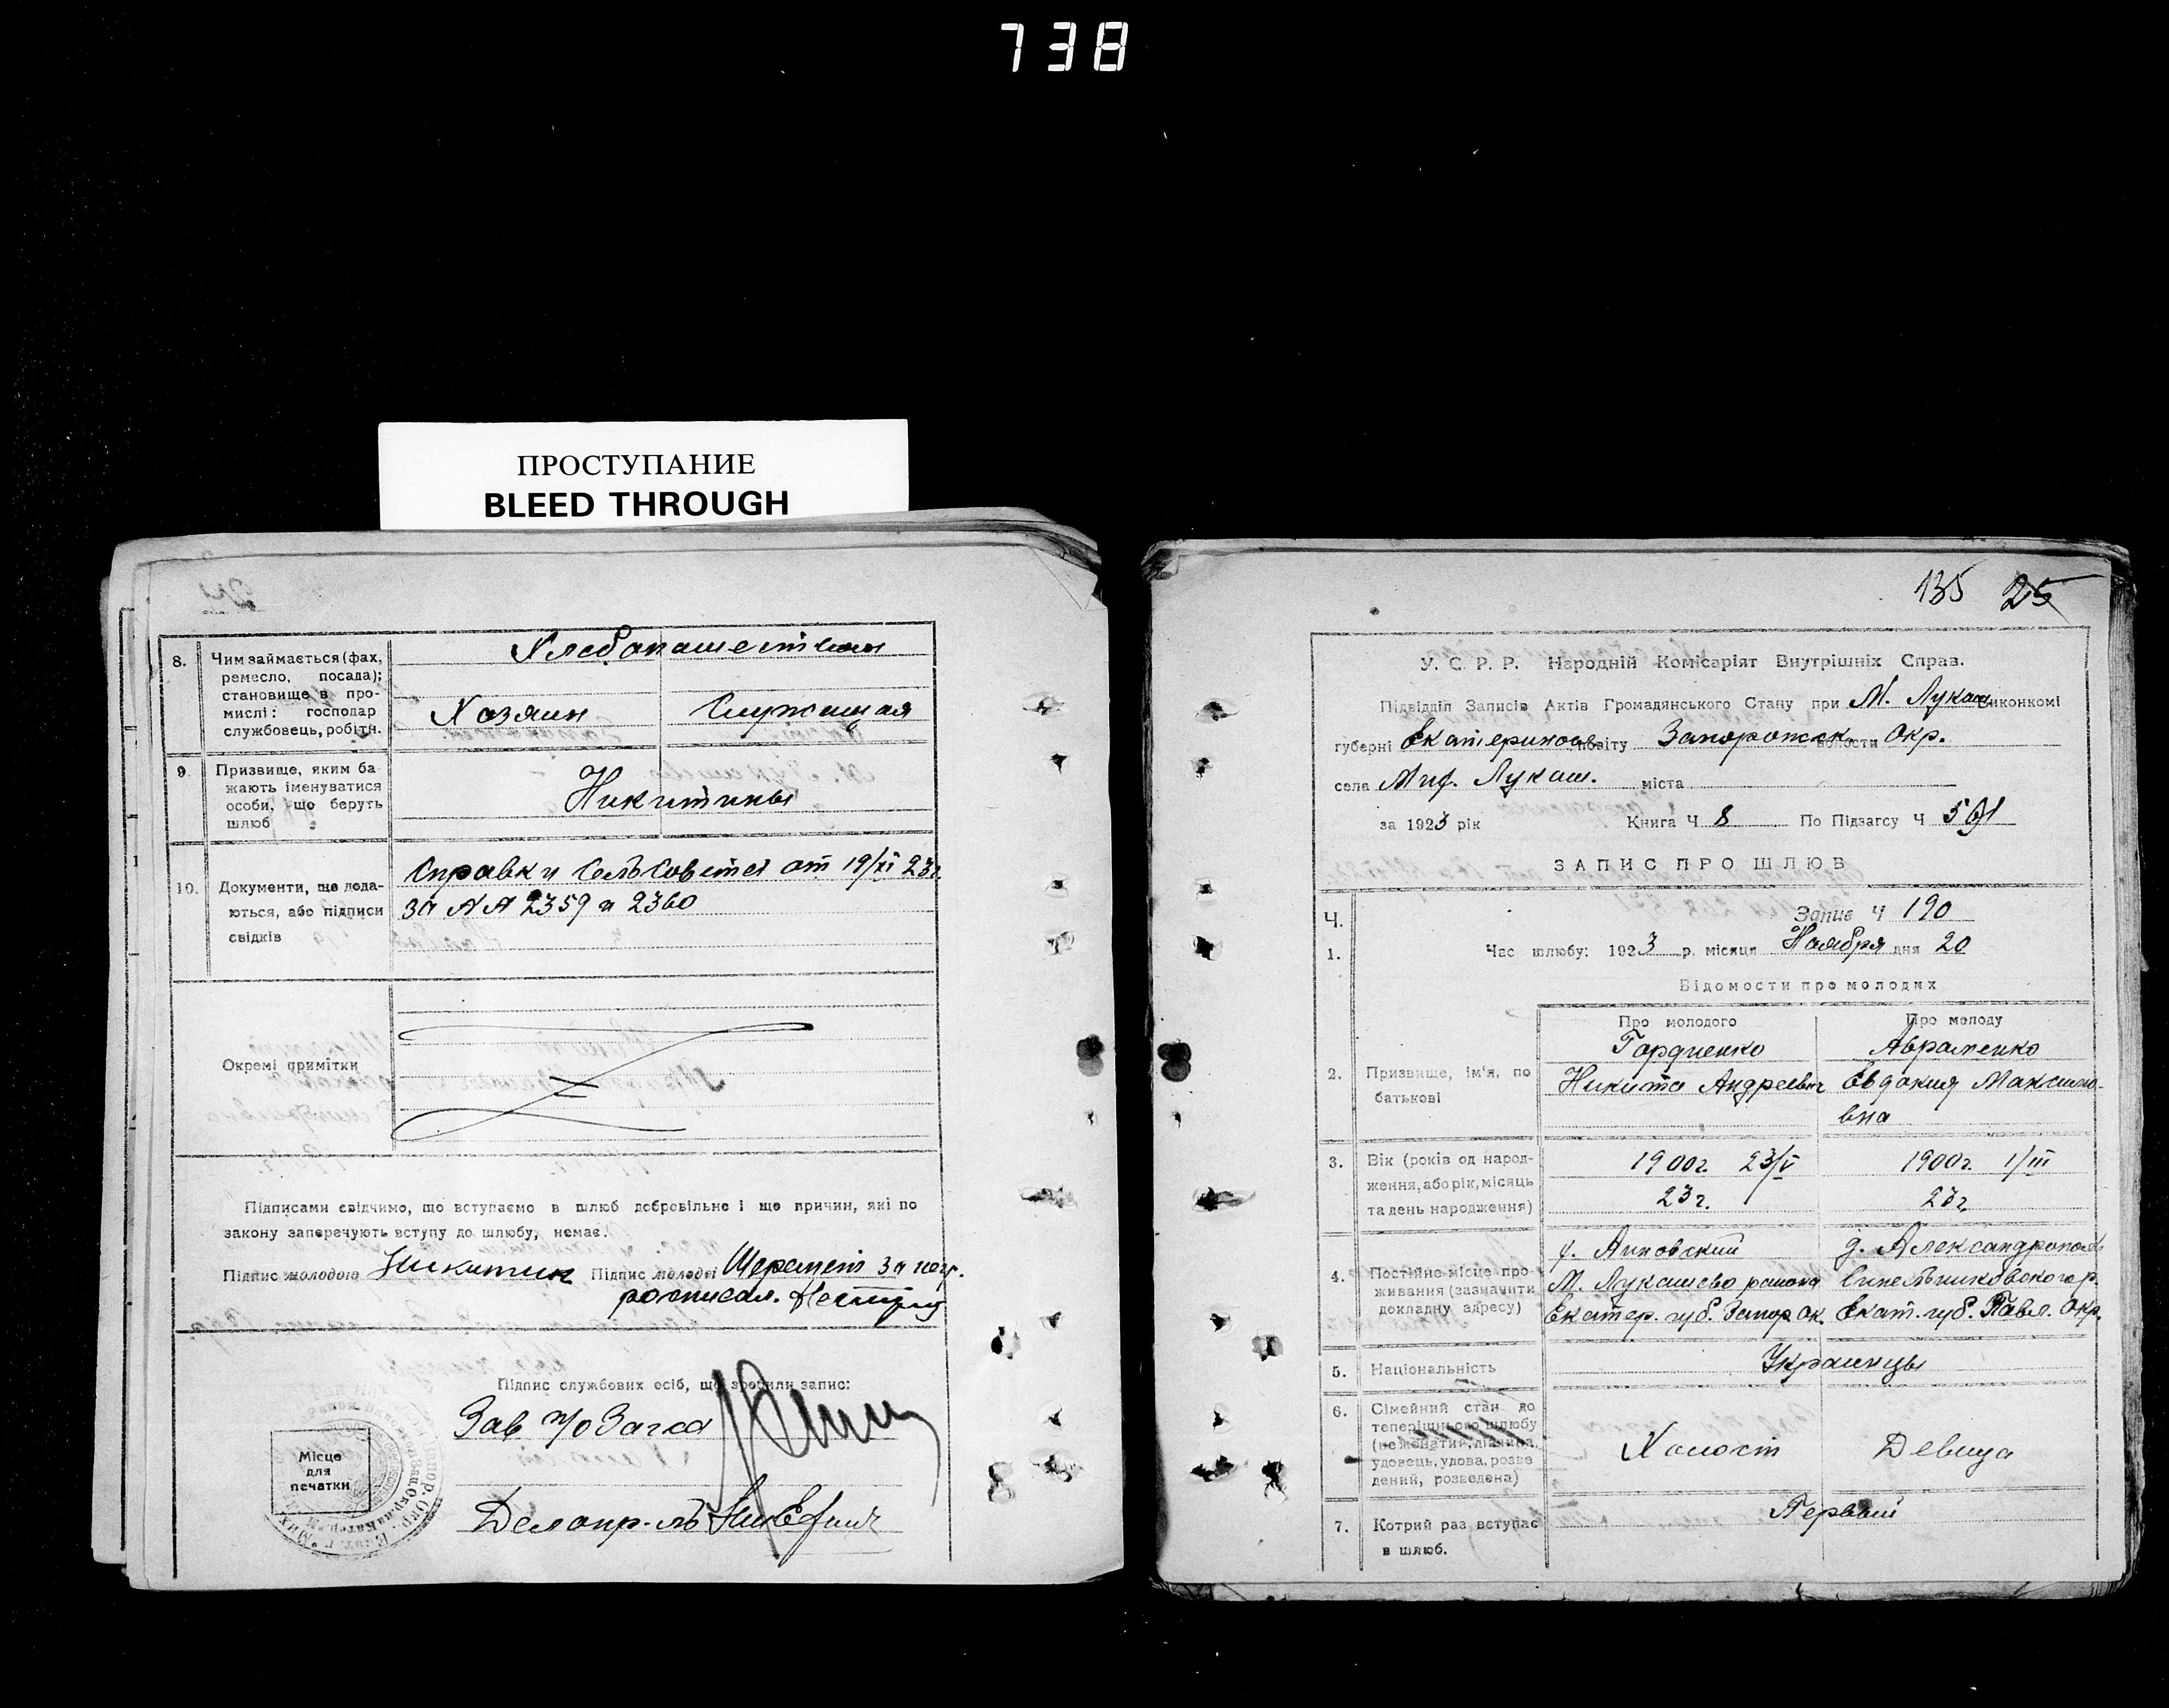 738
ПРОСТУПАНИЕ
BLEED THROUGH
8. Чим займається (фах, ремесло, посада); становище в промислі: господар службовець, робітн.
Хлебопашеством
Хозяин Служащая
9. Призвище, яким бажають іменуватися особи, що беруть шлюб
Никитины
10. Документи, що додаються, або підписи свідків
Справки СельСовета от 19/XI 23г.
за NN 2359 и 2360
Окремі примітки
Підписами свідчимо, що вступаємо в шлюб добровільно і що причин, які по
закону заперечують вступу до шлюбу, немає.
Підпис молодого Никитин Підпис молодої Шеремет за негр.
росписал.
Підпис службових осіб, що зробили запис:
Зав п/о Загса
Місце
для
печатки
Делопр-ль
135 25
У. С. Р. Р. Народній Комісаріят Внутрішніх Справ.
Підвідділ Записів Актів Громадянського Стану при М. Лукаш виконкомі
губерні Екатеринослав повіту Запорожск. волости Окр.
села Мих. Лукаш. міста
за 1923 рік Книга Ч 8 По Підзагсу Ч
ЗАПИС ПРО ШЛЮБ
Ч. Запис Ч 190
1. Час шлюбу: 1923 р. місяця Ноября дня 20
Відомости про молодих
Про молодого Про молоду
Гордиенко Авраменко
2. Призвище, ім'я, по батькові
Никита Андреевич Евдокия Максимо-
вна
3. Вік (років од народження, або рік, місяць та день народження)
1900г. 23/V 1900г. 1/III
23г. 23г.
4. Постійне місце проживання (зазначити докладну адресу)
х. Анновский д. Александрополь
М. Лукашево района Синельниковского р.
Екатер. губ. Запор Ок. Екат. губ. Павл. Окр.
5. Національність
Украинцы
6. Сімейний стан до теперішнього шлюбу (нежонатий, дівчина, удовець, удова, розведений, розведена)
Холост Девица
7. Котрий раз вступає в шлюб.
Первый